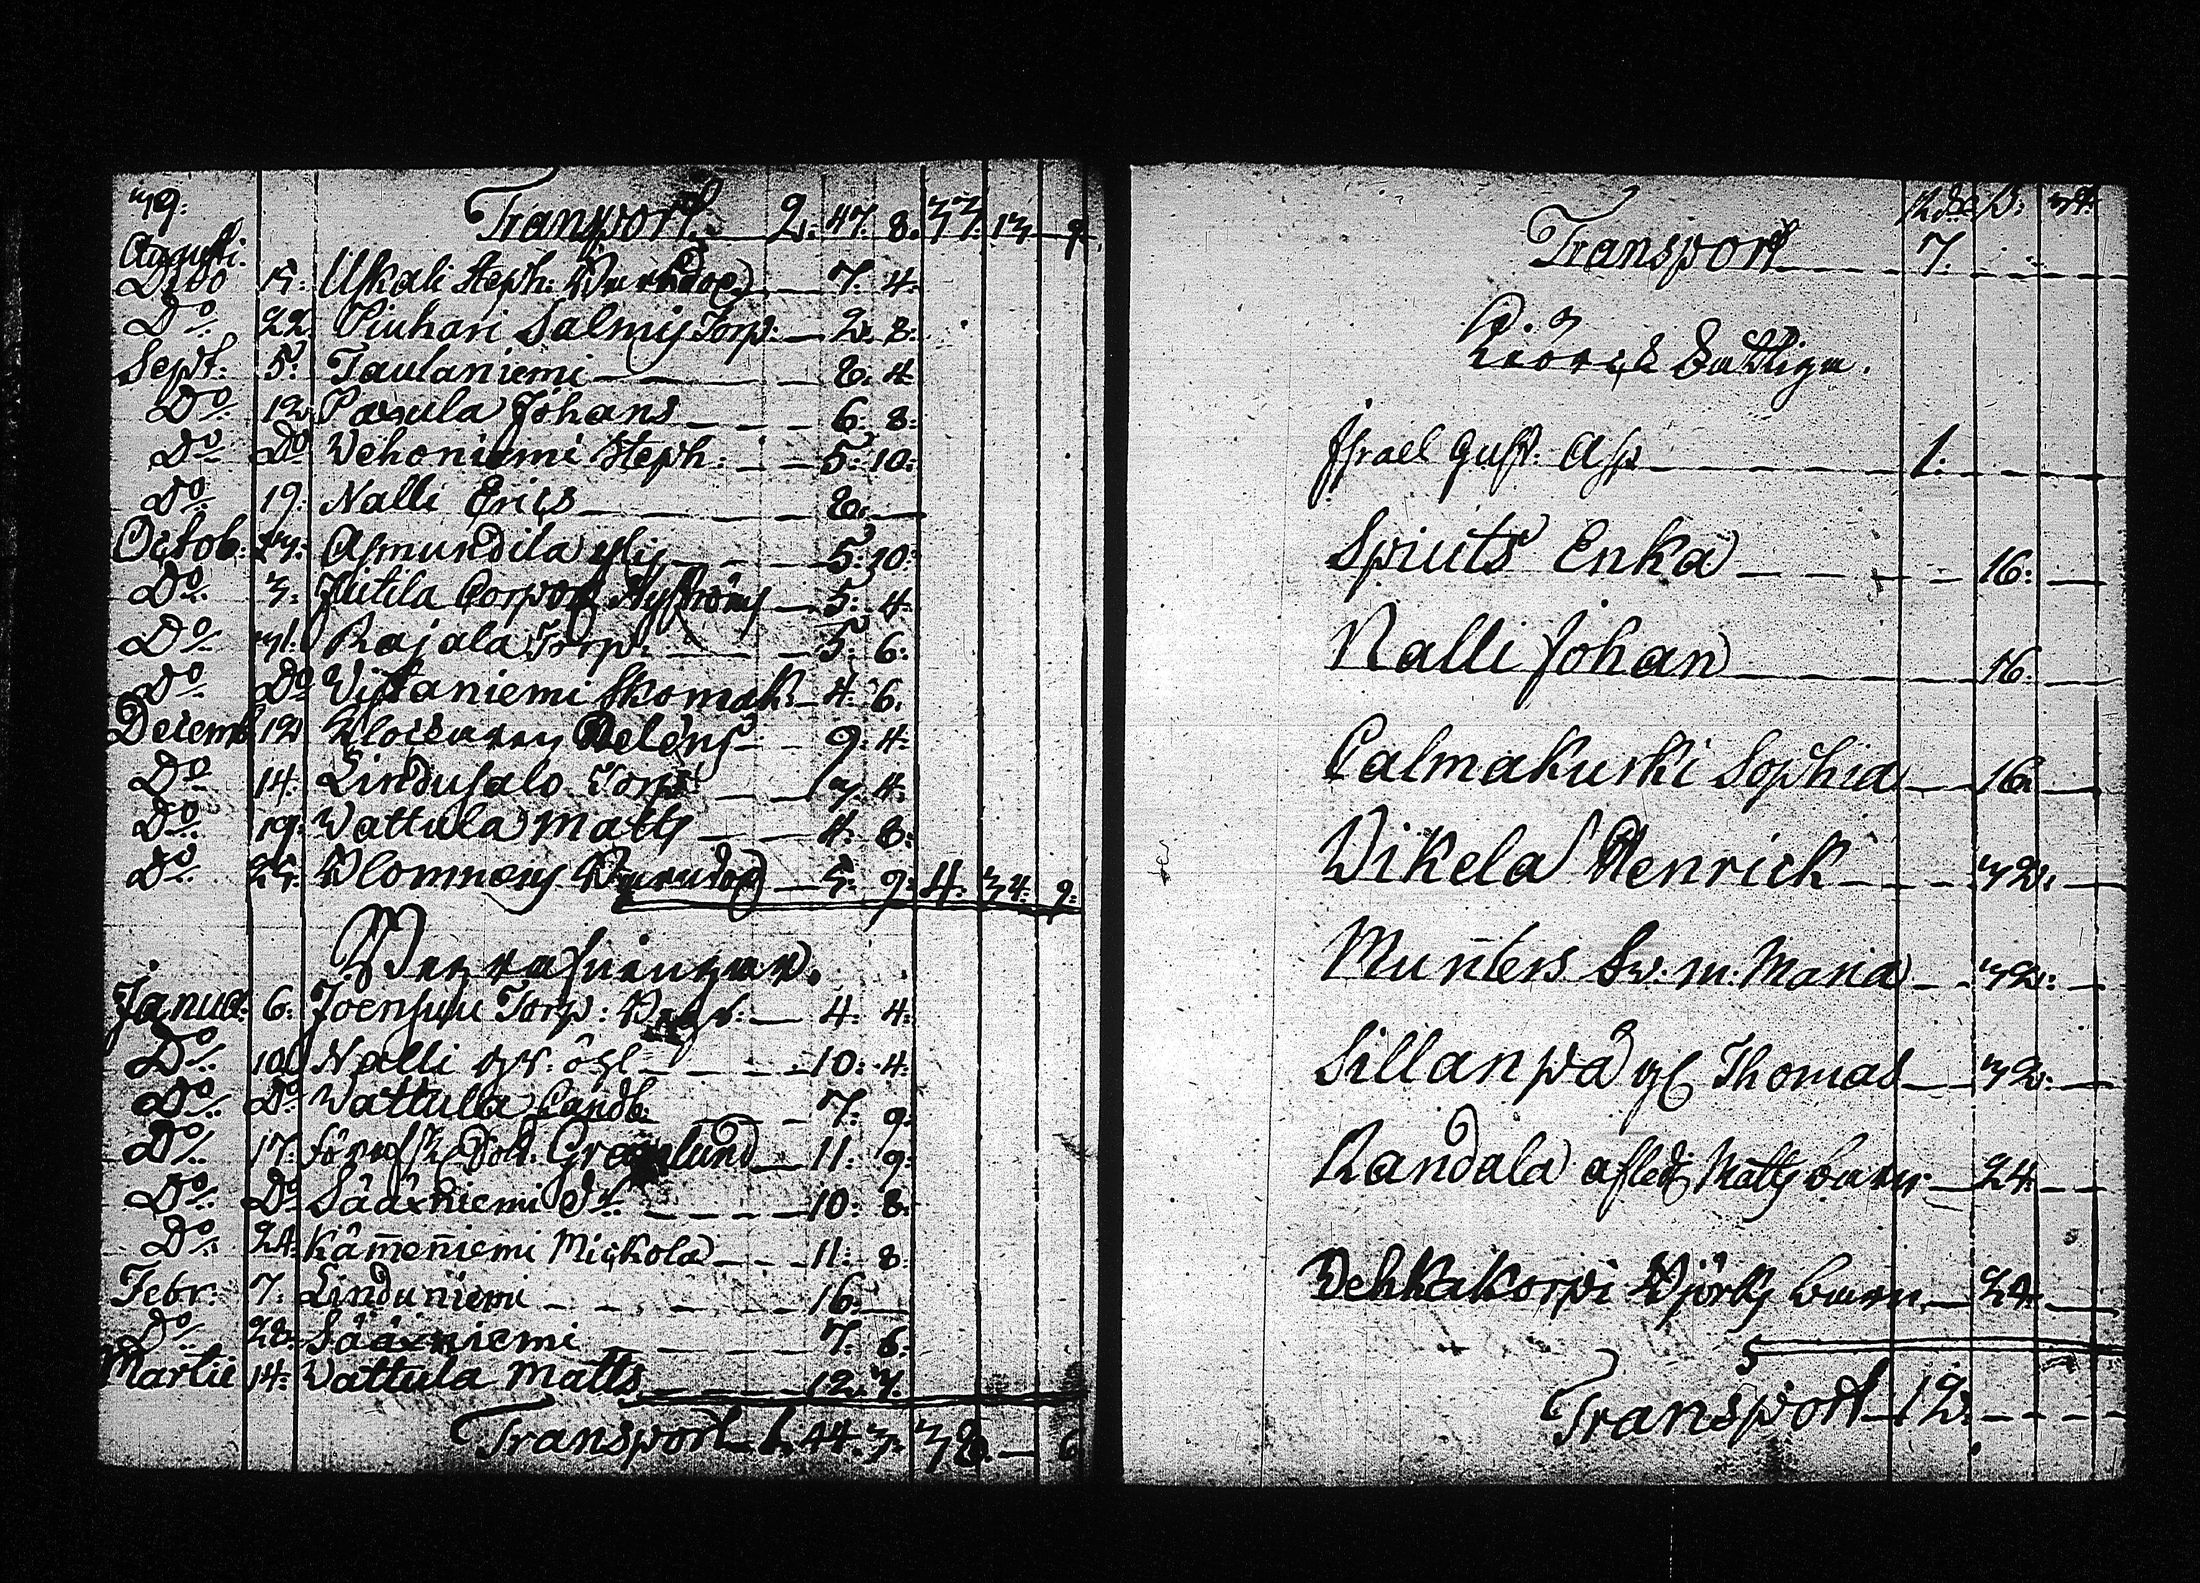 39.
Transport 2. 47. 8. 33. 13. 9.
Augusti.
Dito 15. Uskali Steph: Barndop 7. 4.
Do 22. Piuhari Salmis Torp. 2. 8.
Sept. 5. Taulaniemi 8. 4.
Do 12. Pasula Johans 6. 8.
Do Do Vehoniemi Steph: 5. 10.
Do 19. Nalli Erics 8.
Octob. Asmundila 5. 10.
Do 3. Jutila Corpor. Nyströms 5. 4.
Do 31. Rajala Torp. 5. 6.
Do Do Vistaniemi Skomak. 4. 6.
Decemb. 12. Klockaren Helens 9. 4.
Do 14. Lindusalo Torp 7. 4.
Do 19. Wattula Matts 4. 8.
Do 25. Blomners Barndop 5. 9. 4. 34. 9.
Begrafningar.
Janua. 6. Joensuu Torp: 4. 4.
Do 10. Nalli 10. 4.
Do Do Wattula Landb. 7. 9.
Do 17. Grönlund 11. 9.
Do Do Sääxniemi 10. 8.
Do 24. Kämeniemi Mickola 11. 8.
Febr. 7. Linduniemi 16.
Do 28. Sääxniemi 7. 6.
Martii 14. Wattula Matts 12. 7.
Transport 1. 44. 3. 38. — 6
Rd. s. rst.
Transport 7.
Kiörck Saktige.
Israel Gust. Asp 1.
Spiuts Enka 16.
Nalli Johan 16.
Palmakurki Sophia 16.
Vikela Henrick 32.
Munters Sv. m. Maria 32.
Sillanpä Thomas 32.
Randala afled. Matts barn 24.
Vehkakorpi Björks barn 24.
Transport 12.